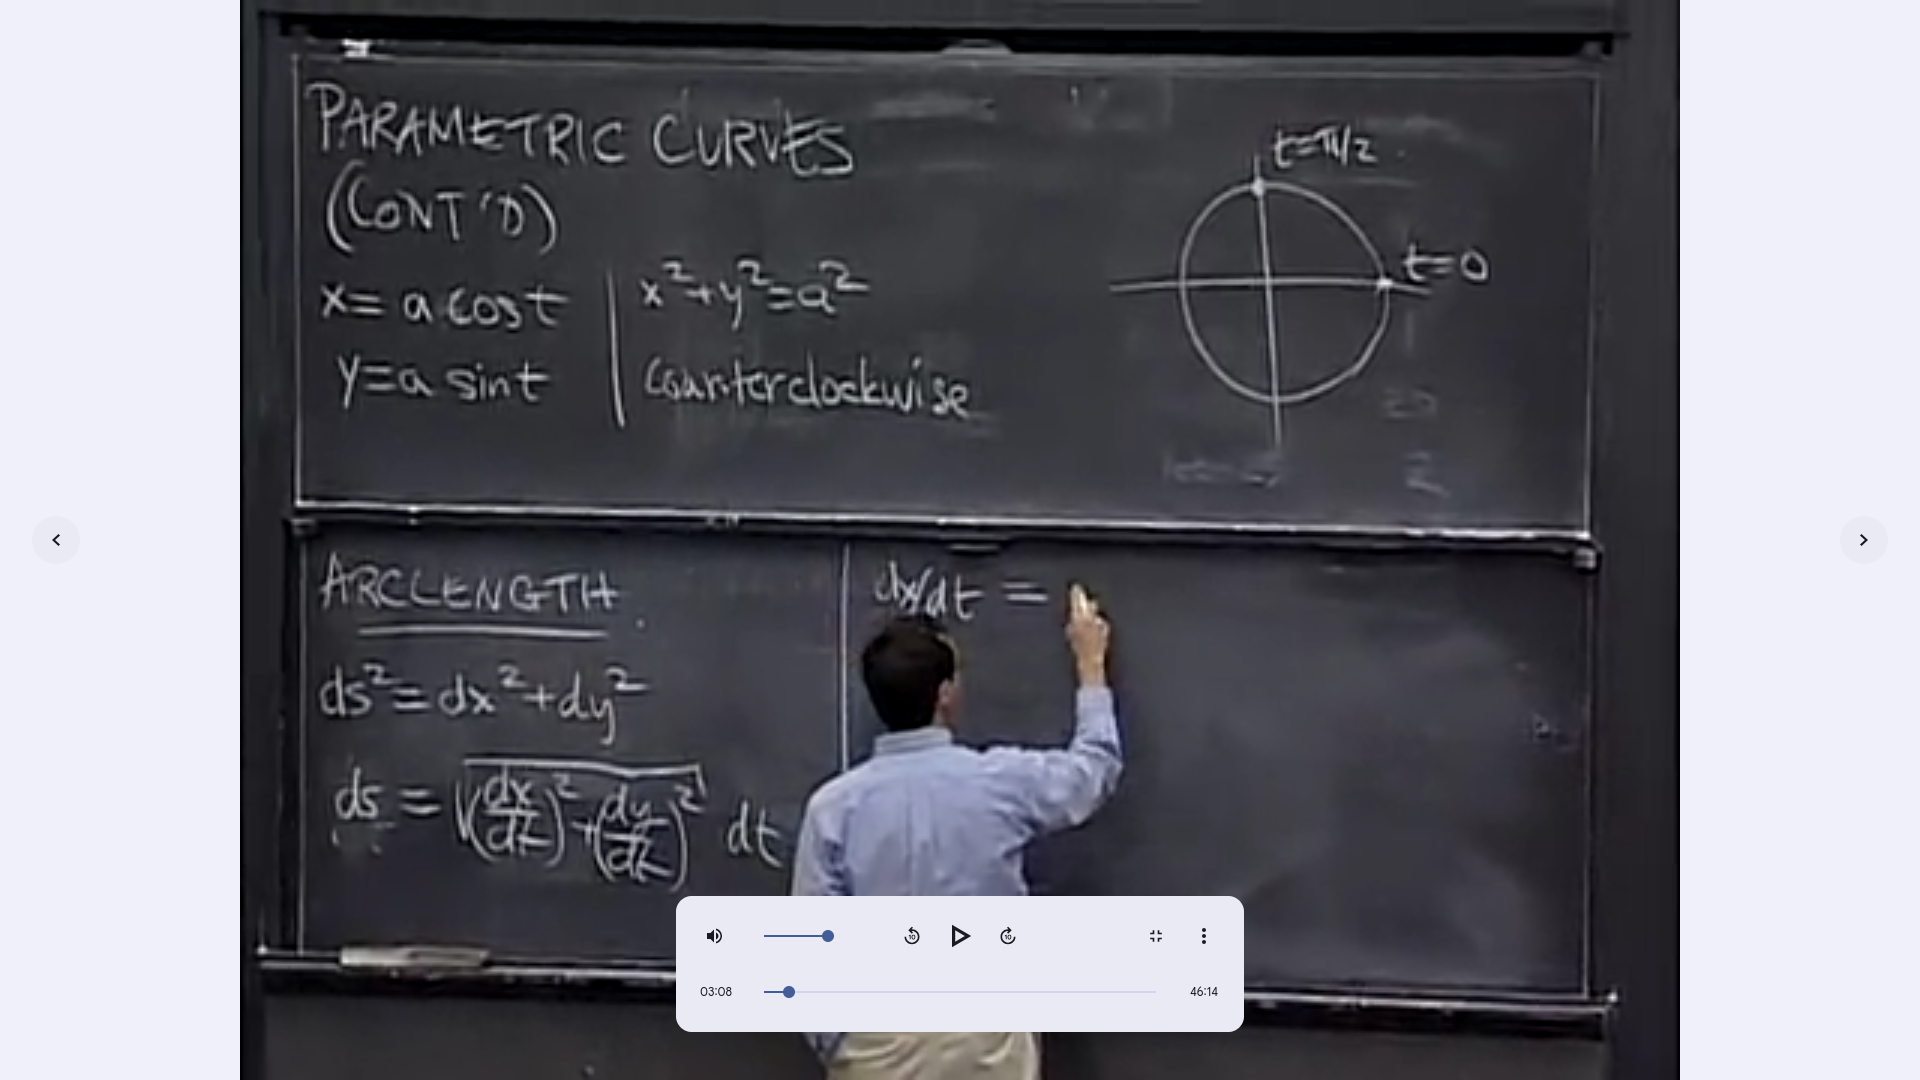 PARAMETRIC CURVES
(CONT'D)
x = a cos t
y = a sin t
x² + y² = a²
counterclockwise
t = π/2
t = 0
ARCLENGTH
ds² = dx² + dy²
ds = √((dx/dt)² + (dy/dt)²) dt
dx/dt =
10
10
03:08
46:14